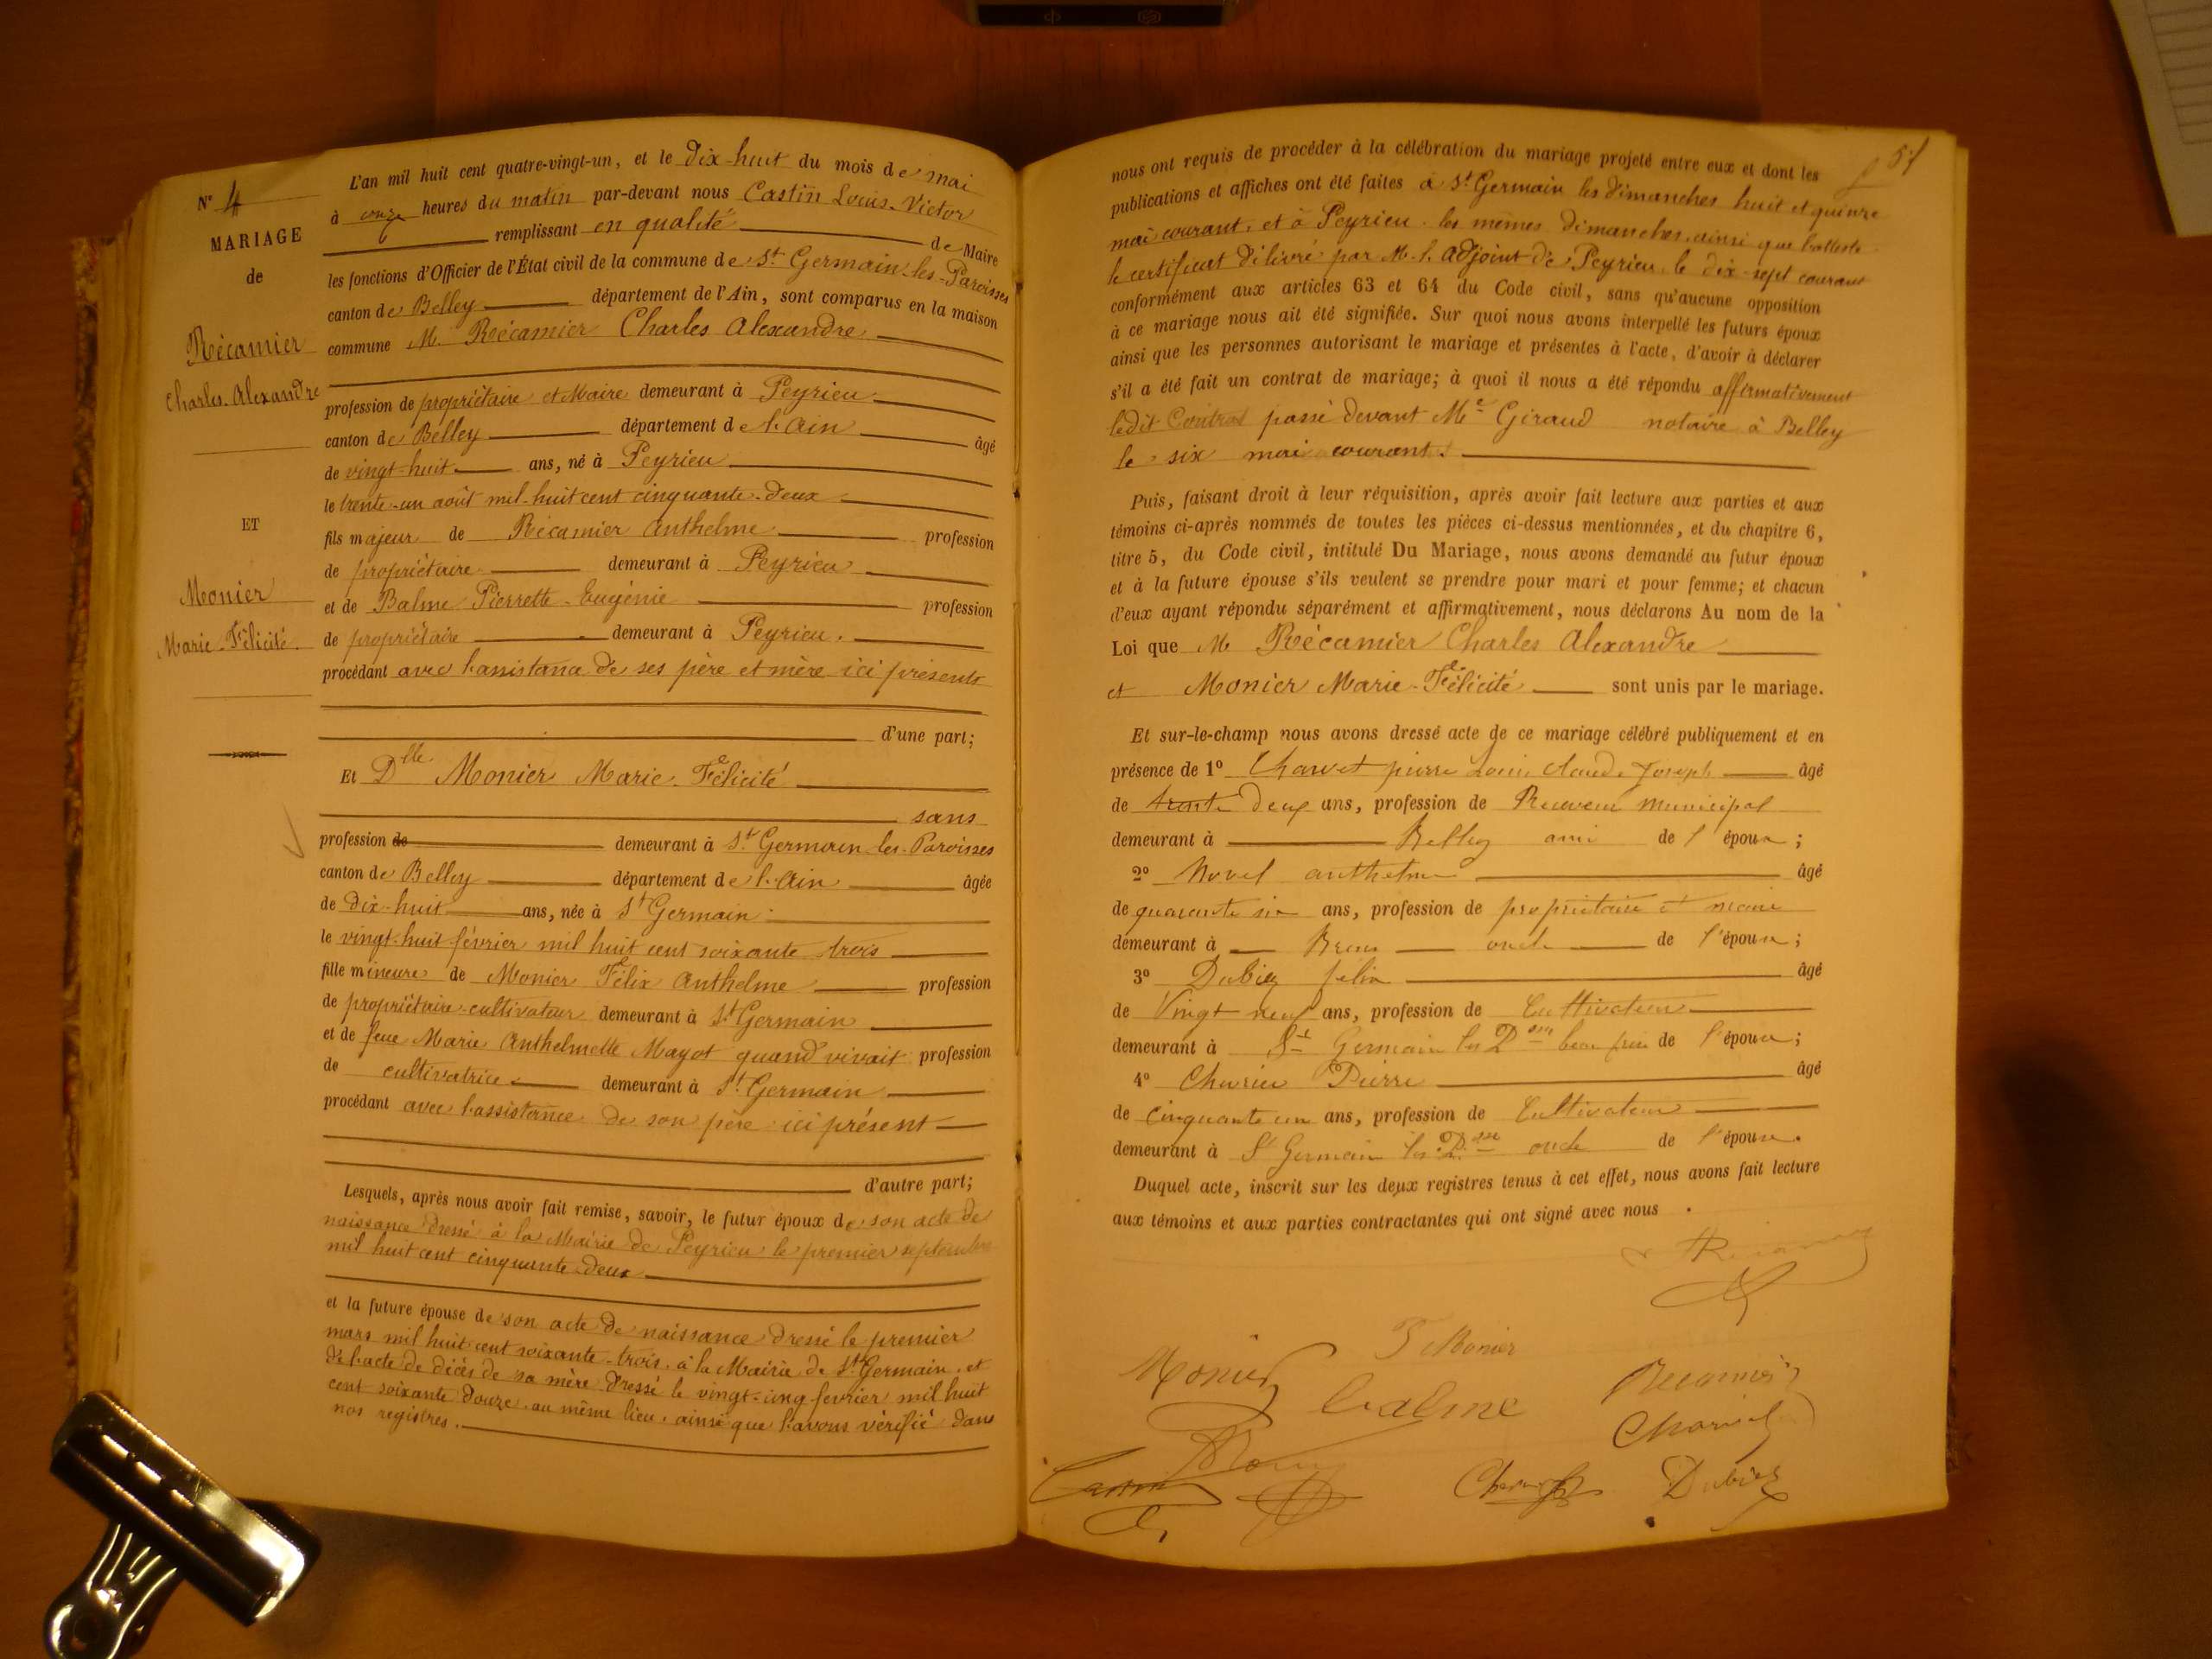 N° 4
MARIAGE
de
Récamier
Charles Alexandre
ET
Monier
Marie-Félicité.
L'an mil huit cent quatre-vingt-un, et le Dix-huit du mois de mai
à onze heures du matin par-devant nous Castin Louis-Victor
remplissant en qualité de Maire
les fonctions d'Officier de l'État civil de la commune de St Germain-les-Paroisses
canton de Belley département de l'Ain, sont comparus en la maison
commune M. Récamier Charles Alexandre
profession de propriétaire et Maire demeurant à Peyrieu
canton de Belley département de l'Ain âgé
de vingt-huit ans, né à Peyrieu
le trente-un août mil-huit cent cinquante-deux
fils majeur de Récamier Anthelme profession
de propriétaire demeurant à Peyrieu
et de Balme Pierrette-Eugénie profession
de propriétaire demeurant à Peyrieu.
procédant avec l'assistance de ses père et mère ici présents
d'une part;
Et Dlle Monier Marie-Félicité
sans
profession de demeurant à St Germain-les-Paroisses
canton de Belley département de l'Ain âgée
de dix-huit ans, née à St Germain
le vingt-huit février mil huit cent soixante-trois
fille mineure de Monier Félix Anthelme profession
de propriétaire-cultivateur demeurant à St Germain
et de feue Marie Anthelmette Mayot quand vivait profession
de cultivatrice demeurant à St Germain
procédant avec l'assistance de son père ici présent
d'autre part;
Lesquels, après nous avoir fait remise, savoir, le futur époux de son acte de
naissance dressé à la Mairie de Peyrieu le premier septembre
mil huit cent cinquante-deux
et la future épouse de son acte de naissance dressé le premier
mars mil huit cent soixante-trois à la Mairie de St Germain, et
de l'acte de décès de sa mère dressé le vingt-cinq février mil huit
cent soixante douze au même lieu, ainsi que l'avons vérifié dans
nos registres.
51
nous ont requis de procéder à la célébration du mariage projeté entre eux et dont les
publications et affiches ont été faites à St Germain les dimanches huit et quinze
mai courant, et à Peyrieu les mêmes dimanches, ainsi que l'atteste
le certificat délivré par M. l'Adjoint de Peyrieu le dix-sept courant
conformément aux articles 63 et 64 du Code civil, sans qu'aucune opposition
à ce mariage nous ait été signifiée. Sur quoi nous avons interpellé les futurs époux
ainsi que les personnes autorisant le mariage et présentes à l'acte, d'avoir à déclarer
s'il a été fait un contrat de mariage; à quoi il nous a été répondu affirmativement
ledit Contrat passé devant Me Giraud notaire à Belley
le six mai courant.
Puis, faisant droit à leur réquisition, après avoir fait lecture aux parties et aux
témoins ci-après nommés de toutes les pièces ci-dessus mentionnées, et du chapitre 6,
titre 5, du Code civil, intitulé Du Mariage, nous avons demandé au futur époux
et à la future épouse s'ils veulent se prendre pour mari et pour femme; et chacun
d'eux ayant répondu séparément et affirmativement, nous déclarons Au nom de la
Loi que M Récamier Charles Alexandre
et Monier Marie-Félicité sont unis par le mariage.
Et sur-le-champ nous avons dressé acte de ce mariage célébré publiquement et en
présence de 1° Charvet pierre Louis Claude Joseph âgé
de trente deux ans, profession de Receveur municipal
demeurant à Belley ami de l'époux;
2° anthelme âgé
de quarante six ans, profession de propriétaire et maire
demeurant à Brens oncle de l'époux;
3° Dubiez félix âgé
de Vingt neuf ans, profession de Cultivateur
demeurant à St Germain les Pses beau frère de l'épouse;
4° Pierre âgé
de cinquante un ans, profession de Cultivateur
demeurant à St Germain les Pses oncle de l'épouse.
Duquel acte, inscrit sur les deux registres tenus à cet effet, nous avons fait lecture
aux témoins et aux parties contractantes qui ont signé avec nous.
F Monier
Monier
Balme
Récamier
Charvet
Castin
Dubiez